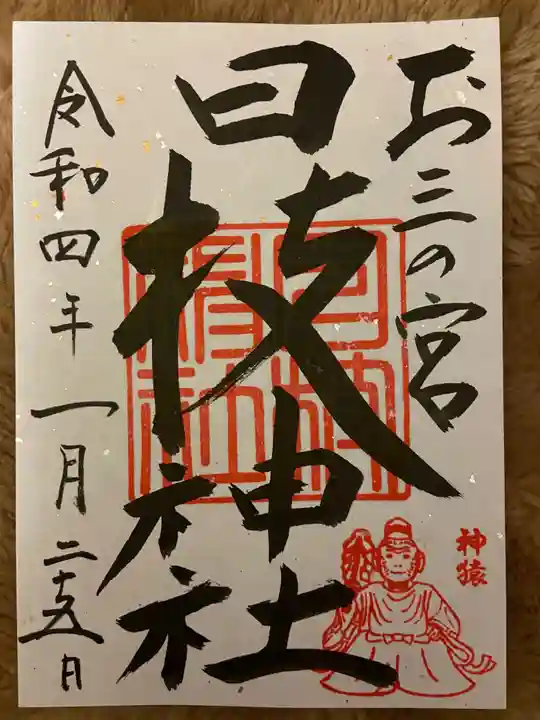 お三の宮
日枝神社
神猿
令和四年一月二十五日